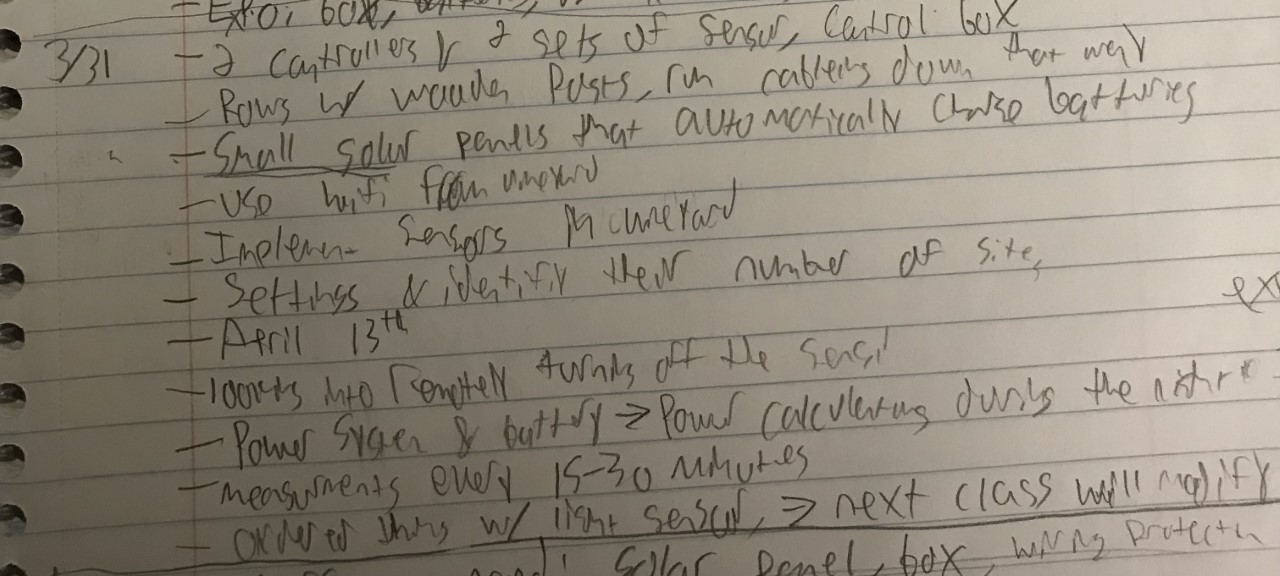 box,
3/31 - 2 controllers & 2 sets of sensor, control box
- Rows w/ wooden Posts, run cableing down that way
- Small solar panells that automatically charge batteries
- use wifi from vineyard
- Implemen- sensors in vineyard
- Settings & identify their number of site,
ex
- April 13th
- looking into remotely turning off the sensor
- Power System & battery => Power calculating during the
- measurments every 15-30 minutes
- ordered things w/ light sensor, => next class will modify
Solar Panel, box, wiring protection